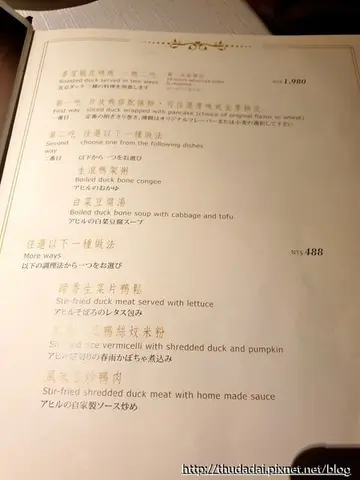 香宴脆皮鴨 一鴨二吃
Roasted duck served in two ways
北京ダック 二種の料理を用意します
NT$ 1,980
第一吃
First way sliced duck wrapped with pancake (choice of original flavor or wheat)
一番目
第二吃 任選以下一種做法
Second way choose one from the following dishes
二番目 以下から一つをお選び
生滾鴨架粥
Boiled duck bone congee
アヒルのおかゆ
白菜豆腐湯
Boiled duck bone soup with cabbage and tofu
アヒルの白菜豆腐スープ
任選以下一種做法
NT$ 488
More ways
以下の調理法から一つをお選び
蹄香生菜片鴨鬆
Stir-fried duck meat served with lettuce
アヒルそぼろのレタス包み
鴨絲炆米粉
rice vermicelli with shredded duck and pumpkin
アヒル 切りの春雨かぼちゃ煮込み
風味 炒鴨肉
Stir-fried shredded duck meat with home made sauce
アヒルの自家製ソース炒め
http://thudadai.pixnet.net/blog